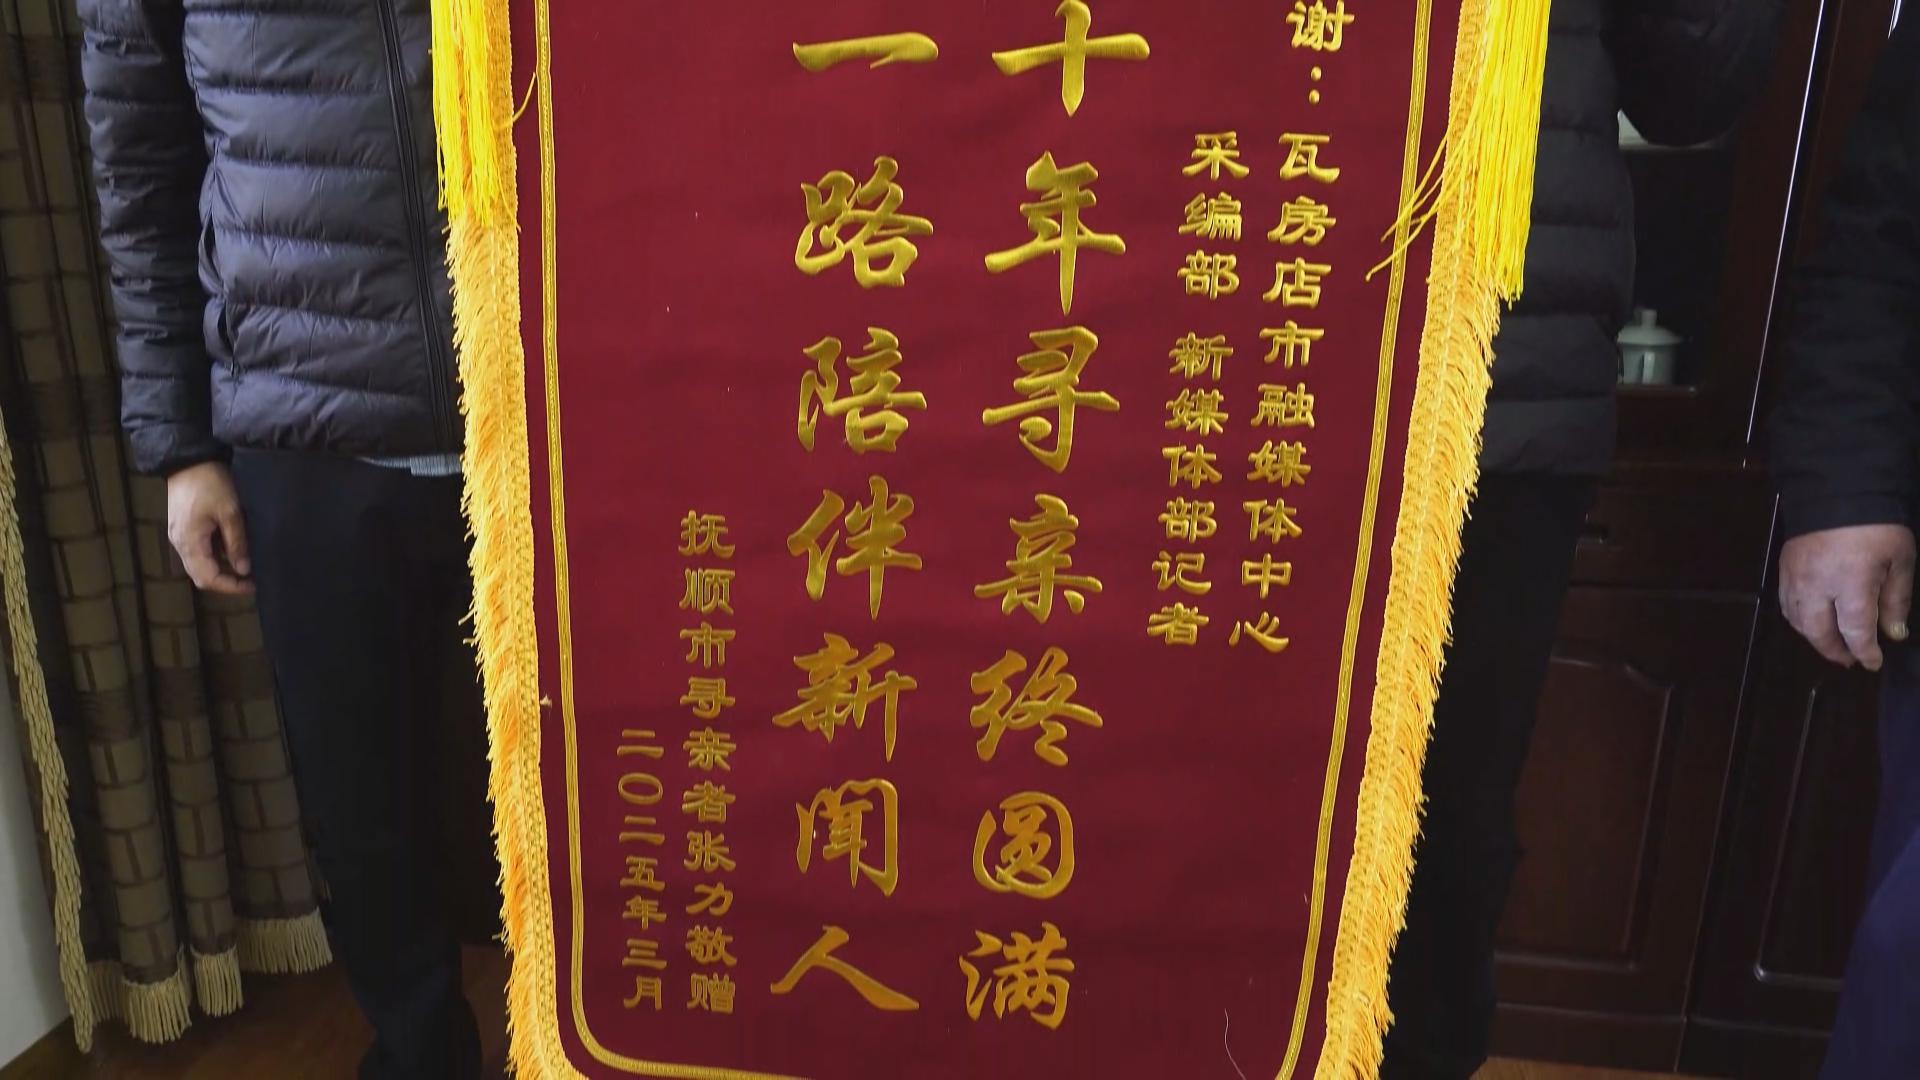 谢：瓦房店市融媒体中心
采编部 新媒体部记者
十年寻亲终圆满
一路陪伴新闻人
抚顺市寻亲者张力敬赠
二〇二五年三月